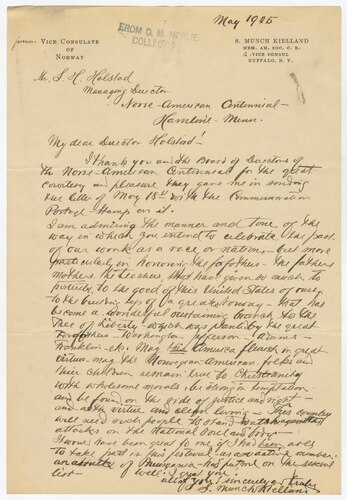 May 1925
FROM O. M. NORLIE
COLLECTION
former - VICE CONSULATE
OF
NORWAY
S. MUNCH KIELLAND
MEM. AM. SOC. C. E.
VICE CONSUL
BUFFALO, N. Y.
Mr. S. H. Holstad
Managing Director
Norse-American Centennial -
Minn.
My dear Director Holstad!
I thank you and the Board of Directors of
the Norse-American Centennial for the great
courtesy and pleasure they gave me in sending
the letter of May 18th with the Commemoration
Postal-Stamp on it.
I am admiring the manner and tone of the
way in which you intend to celebrate the past
of our work as a race or nation - but more
particularly in honoring the forfathers - the fathers
mothers, the teachers, that have given so much to
posterity, to the good of this United States of ours
to the building up of a great - that has
become a wonderful sustaining branch to the
Tree of Liberty - which was planted by the great
Forefathers - Washington Jefferson - Adams -
Franklin - etc. May America flourish in great
virtue - may the Norwegian American folks and
their Children remain true to Christianity
with wholesome morals - be strong in temptation
and be found on the side of justice and right -
and with virtue and clean living - This country
will need such people to stand
attacks on the National Soul and body.
would have been great to me if I had been able
to take part in this festival as an active member
on account of on the second
list -
sincerely
S. Munch Kielland